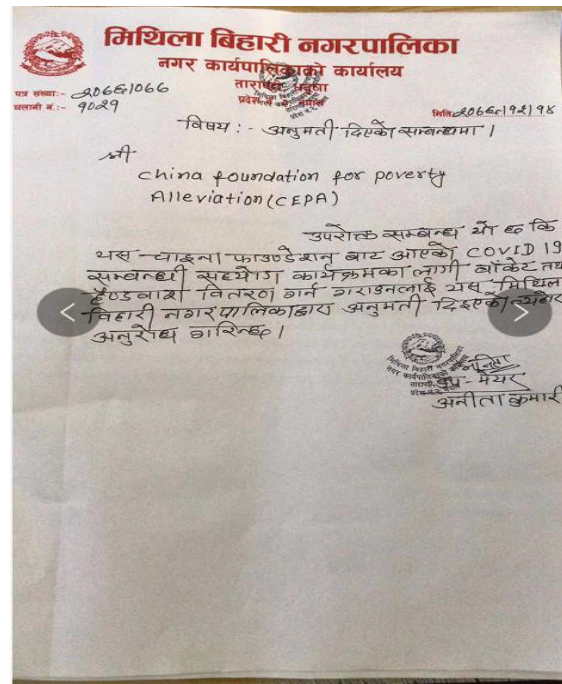 मिथिला बिहारी नगरपालिका
नगर कार्यपालिकाको कार्यालय
तारापट्टी, धनुषा
प्रदेश नं. २, नेपाल
पत्र संख्याः- २०७६/०७७
चलानी नं.:- १०२१
मिति २०७६/१२/१८
विषय :- अनुमती दिएको सम्बन्धमा ।
श्री
China foundation for poverty
Alleviation (CEPA)
उपरोक्त सम्बन्ध यो छ कि
यस चाइना फाउण्डेशन बाट आएको COVID 19
सम्बन्धी सहयोग कार्यक्रमका लागी बकेट तथ
हैण्डवाश वितरण गर्न गराउनलाई यस मिथिला
विहारी नगरपालिकाद्वारा अनुमती दिइएको
अनुरोध गरिन्छ ।
उप-मेयर
अनीता कुमारी